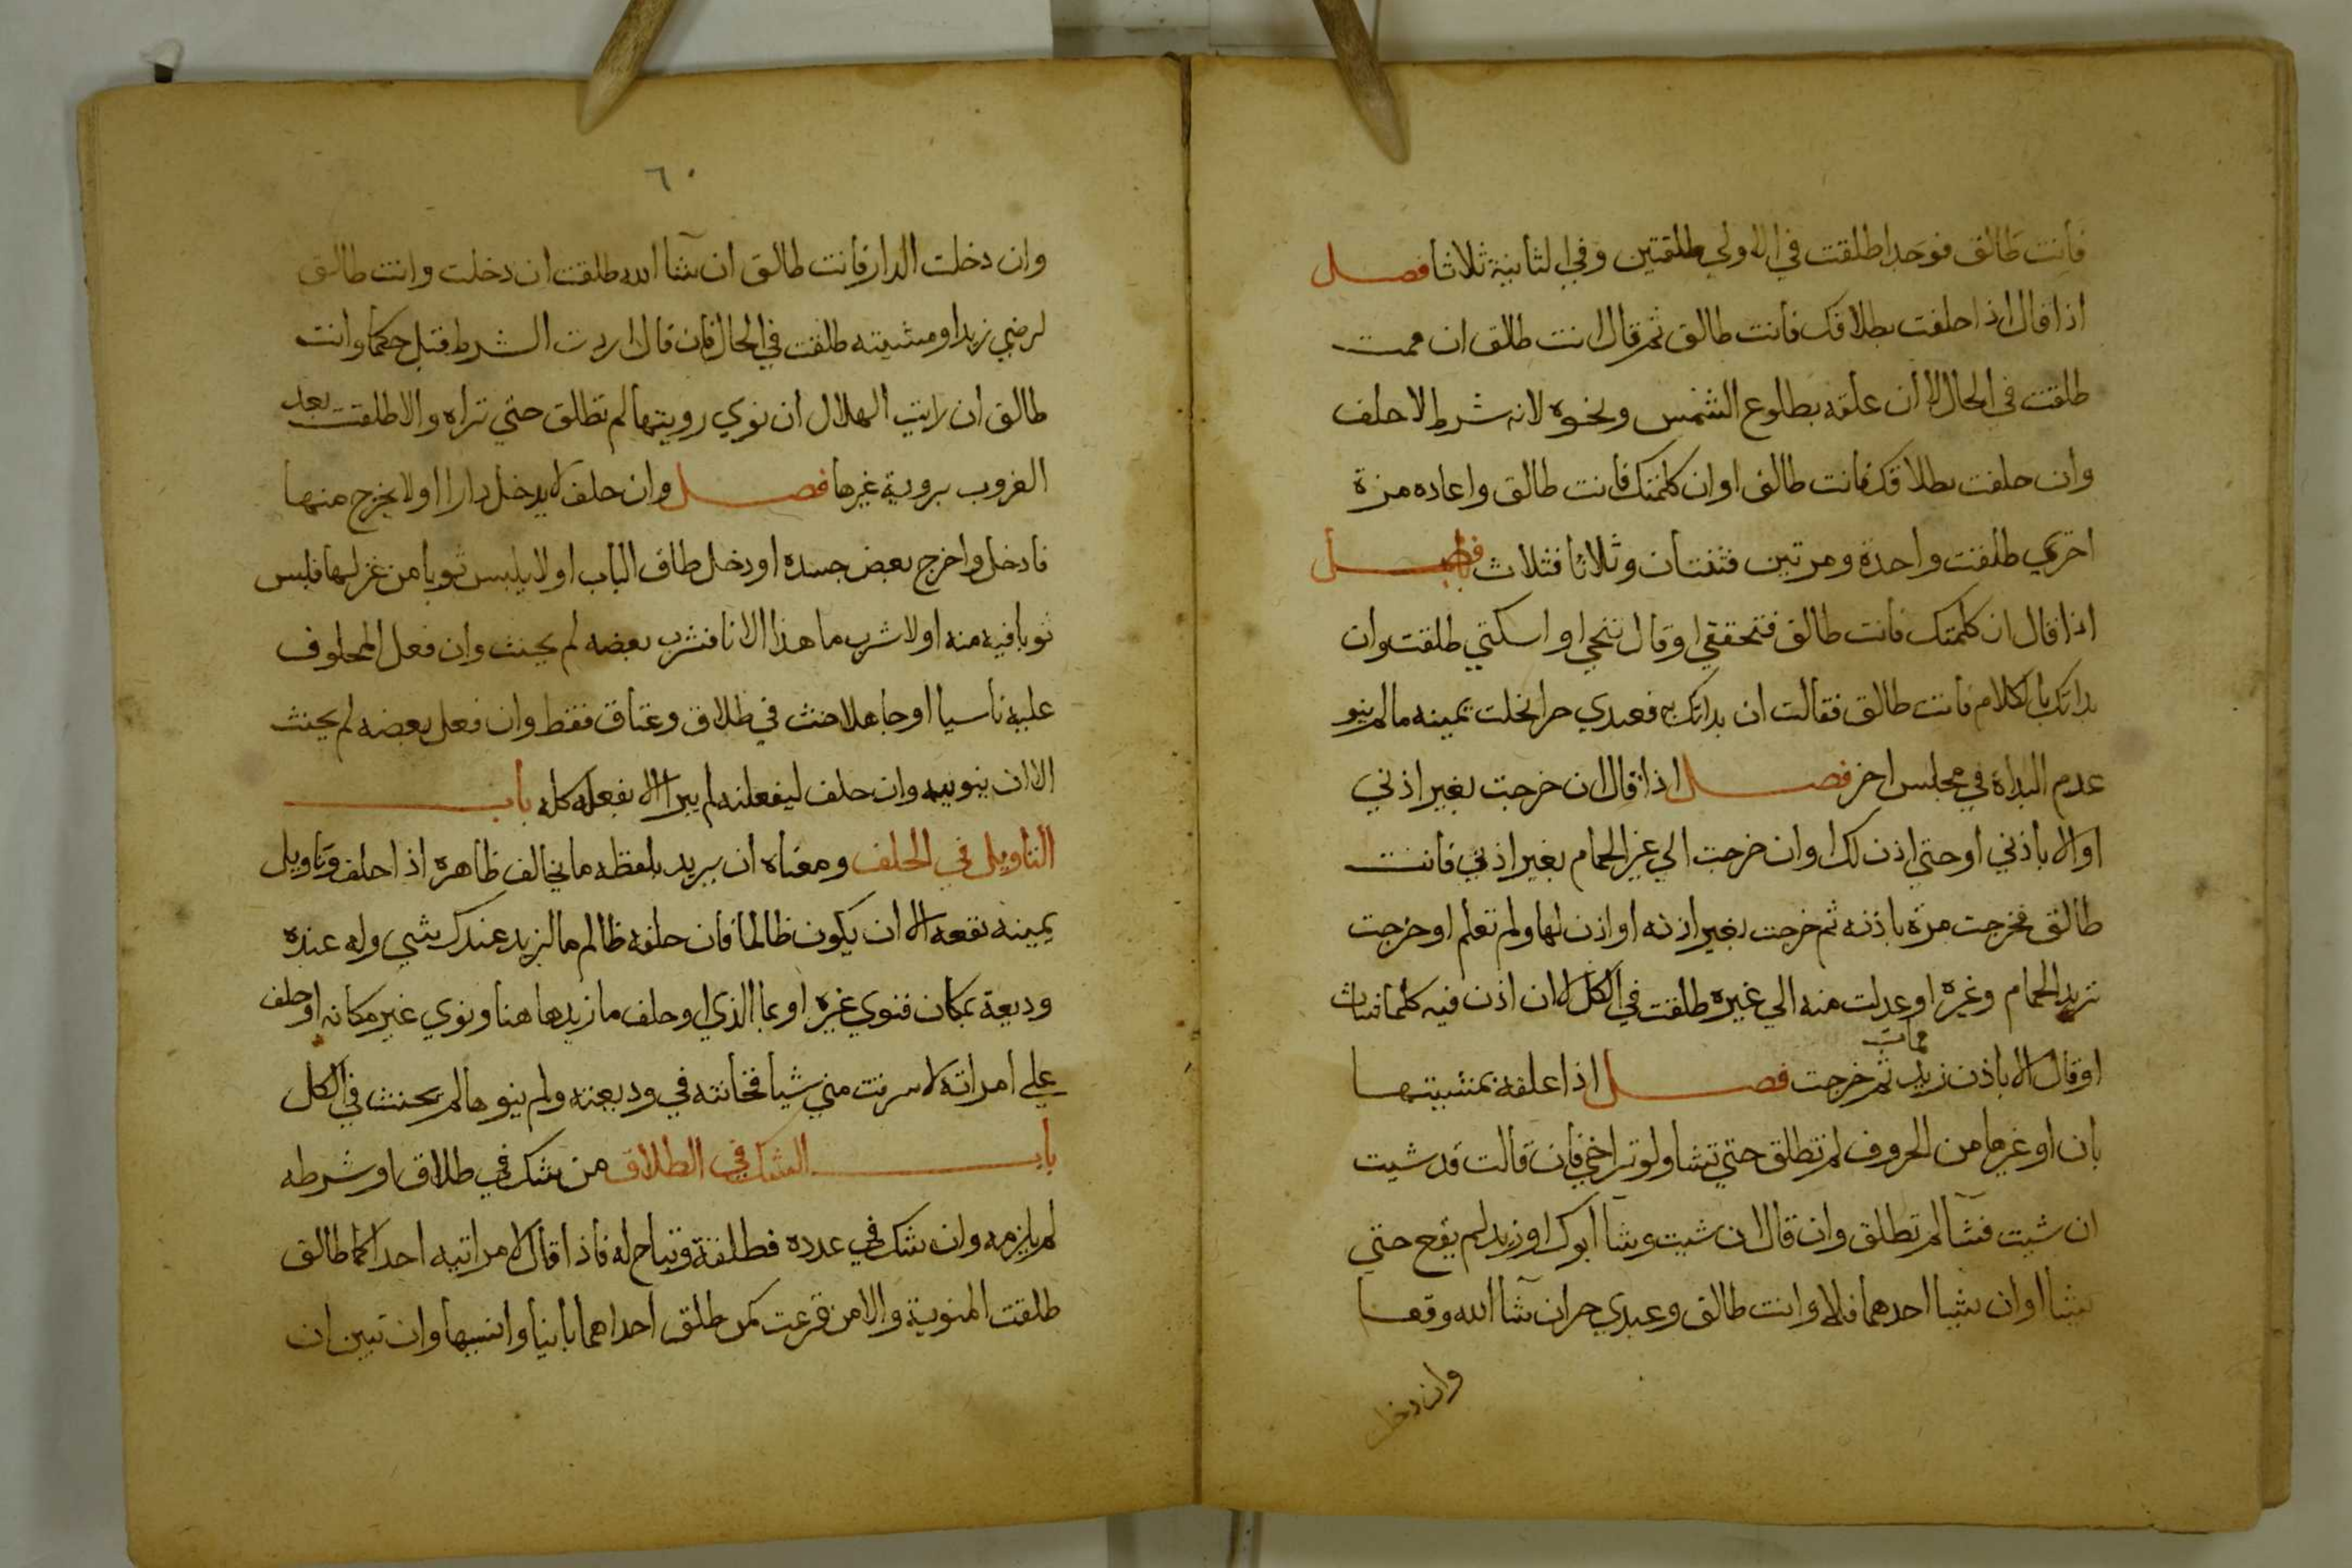 فأنت طالق فوجدا طلقت في الاولي طلقتين وفي الثانية ثلاثا فصل
اذا قال اذا حلفت بطلاقك فانت طالق ثم قال انت طلق ان قمت
طلقت في الحال لا ان علقه بطلوع الشمس ونحوه لانه شرط لا حلف
وان حلفت بطلاقك فانت طالق او ان كلمتك فانت طالق واعاده مرة
اخري طلقت واحدة ومرتين فثنتان وثلاثا فثلاث فصل
اذا قال ان كلمتك فانت طالق فتحققي او قال تنحي او اسكتي طلقت وان
بداتك بالكلام فانت طالق فقالت ان بداتك به فعبدي حر انحلت يمينه ما لم ينو
عدم البداة في مجلس اخر فصل اذا قال ان خرجت بغير اذني
او الا باذني او حتي اذن لك او ان خرجت الي غير الحمام بغير اذني فانت
طالق فخرجت مرة باذنه ثم خرجت بغير اذنه او اذن لها ولم تعلم او خرجت
تريد الحمام وغيره او عدلت منه الي غيره طلقت في الكل لا ان اذن فيه كلما شات
او قال الا باذن زيد فمات ثم خرجت فصل اذا علقه بمشيتها
بان او غيرها من الحروف لم تطلق حتي تشا ولو تراخي فان قالت قد شيت
ان شيت فشا لم تطلق وان قال ان شيت وشا ابوك او زيد لم يقع حتي
يشا او ان شا احدهما فلا وانت طالق وعبدي حر ان شا الله وقعا
وان دخل
٦٠
وان دخلت الدار فانت طالق ان شا الله طلقت ان دخلت وانت طالق
لرضي زيد او مشيته طلقت في الحال فان قال اردت الشرط قبل حكما وانت
طالق ان رايت الهلال ان نوي رويتها لم تطلق حتي تراه والا طلقت بعد
الغروب بروية غيرها فصل وان حلف لا يدخل دارا او لا يخرج منها
فادخل واخرج بعض جسده او دخل طاق الباب او لا يلبس ثوبا من غزلها فلبس
ثوبا فيه منه او لا شرب ما هذا الانا فشرب بعضه لم يحنث وان فعل المحلوف
عليه ناسيا او جاهلا حنث في طلاق وعتاق فقط وان فعل بعضه لم يحنث
الا ان ينويه وان حلف ليفعلنه لم يبر الا بفعله كله باب
التاويل في الحلف ومعناه ان يريد بلفظه ما يخالف ظاهره اذا حلف وتاويل
يمينه نفعه الا ان يكون ظالما فان حلفه ظالم ما لزيد عندك شي وله عنده
وديعة بمكان فنوي غيره او بما الذي او حلف ما زيد هاهنا ونوي غير مكانه او حلف
علي امراته لا سرقت مني شيا فخانته في وديعته ولم ينوها لم يحنث في الكل
باب الشك في الطلاق من شك في طلاق او شرطه
لم يلزمه وان شك في عدده فطلقة وتباح له فاذا قال لامراتيه احداكما طالق
طلقت المنوية والا من قرعت كمن طلق احداهما باينا وانسيها وان تبين ان